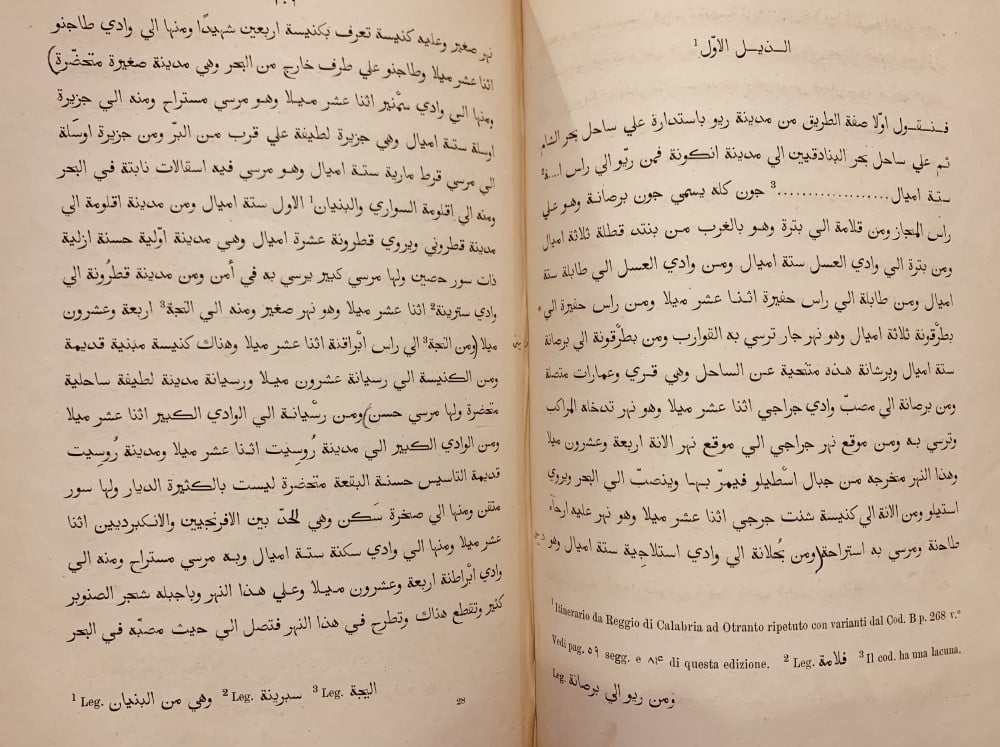 الـذيـل الاوّل ¹
فـنـقـول اوّلا صفة الطريق من مدينة ريو باستدارة علي ساحل بحر الشام
ثم علي ساحل بحر البنادقيين الي مدينة انكونة فمن ريّو الي راس
ستة اميال....................³ جون كله يسمي جون برصانة وهو علي
راس المجاز ومن قلامة الي بترة وهو بالغرب من بنتد قطلة ثلاثة اميال
ومن بترة الي وادي العسل ستة اميال ومن وادي العسل الي طابلة ستة
اميال ومن طابلة الي راس حفيرة اثنا عشر ميلا ومن راس حفيرة الي
بطرقونة ثلاثة اميال وهو نهر جار ترسي به القوارب ومن بطرقونة الي برصانة
ستة اميال وبرشانة هذه منتحية عن الساحل وهي قري وعمارات متصلة
ومن برصانة الي مصبّ وادي جراجي اثنا عشر ميلا وهو نهر تدخله المراكب
وترسي به ومن موقع نهر جراجي الي موقع نهر الانة اربعة وعشرون ميلا
وهذا النهر مخرجه من جبال اسْطيلو فيمرّ بها وينصبّ الي البحر ويروي
استيلو ومن الانة الي كنيسة شنت جرجي اثنا عشر ميلا وهو نهر عليه ارحآء
طاحنة ومرسي به استراحة(ومن بُحلانة الي وادي استلاجية ستة اميال وهو
¹ Itinerario da Reggio di Calabria ad Otranto ripetuto con varianti dal Cod. B p. 268 v.°
Vedi pag. ٥٩ segg. e ٨١٤ di questa edizione. ² Leg. فلامة ³ Il cod. ha una lacuna.
Leg. ومن ريو الي برصانة
نهر صغير وعليه كنيسة تعرف بكنيسة اربعين شهيدًا ومنها الي وادي طاجنو
اثنا عشر ميلا وطاجنو علي طرف خارج من البحر وهي مدينة صغيرة متحضّرة)
ومنها الي وادي سمْنير اثنا عشر ميلا وهو مرسي مستراح ومنه الي جزيرة
اوسلة ستة اميال وهي جزيرة لطيفة علي قرب من البرّ ومن جزيرة اوسَلة
الي مرسي قرط مارية ستة اميال وهو مرسي فيه اسقالات نابتة في البحر
ومنه الي اقلومة السواري والبنيان¹ الاول ستة اميال ومن مدينة اقلومة الي
مدينة قطروني ويروي قطرونة عشرة اميال وهي مدينة اوّلية حسنة ازلية
ذات سور حصين ولها مرسي كبير يرسي به في أمن ومن مدينة قطرُونة الي
وادي سترينة² اثنا عشر ميلا وهو نهر صغير ومنه الي التجة³ اربعة وعشرون
ميلا (ومن التجة³ الي راس ابْراقنة اثنا عشر ميلا وهناك كنيسة مبنية قديمة
ومن الكنيسة الي رسيانة عشرون ميلا ورسيانة مدينة لطيفة ساحلية
متحضرة ولها مرسي حسن)ومن رسْيانة الي الوادي الكبير اثنا عشر ميلا
ومن الوادي الكبير الي مدينة رُوسيت اثنا عشر ميلا ومدينة رُوسيت
قديمة التاسيس حسنة البقعة متحضرة ليست بالكثيرة الديار ولها سور
متقن ومنها الي صخرة سَكن وهي للحدّ بين الافرنجيين والانكبرديين اثنا
عشر ميلا ومنها الي وادي سكنة ستة اميال وبه مرسي مستراح ومنه الي
وادي ابْراطنة اربعة وعشرون ميلا وعلي هذا النهر وباجبله شجر الصنوبر
كثير وتقطع هناك وتطرح في هذا النهر فتصل الي حيث مصبّه في البحر
¹ Leg. وهي من البنيان ² Leg. سبرينة ³ Leg. اليجة
28